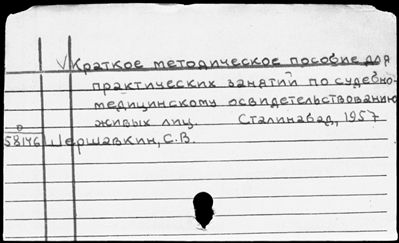 √ Краткое методическое пособие для
практических занятий по судебно-
медицинскому освидетельствованию
живых лиц. Сталинабад, 1957
58146 Шершавкин, С.В.